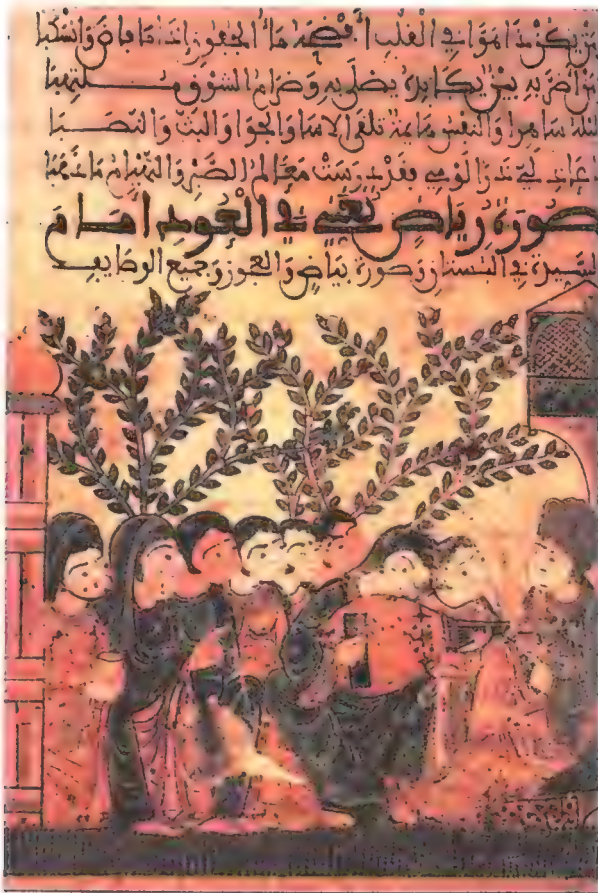 من يكن ذا هوا في القلب افضحه ماء الجفون اذا ما فاض وانسكبا
من اضر به بين يكابده يصلى به وضرام الشوق ملتهبا
ساهرا والنفس هايمة تلقى الاسا والجوا والبث والنصبا
لومي فقد درست معالم الصبر والتهيام ما ذهبا
صورة رياض تغني في العود امام
السيدة في البستان وصورة بياض والعجوز وجميع الوصايف